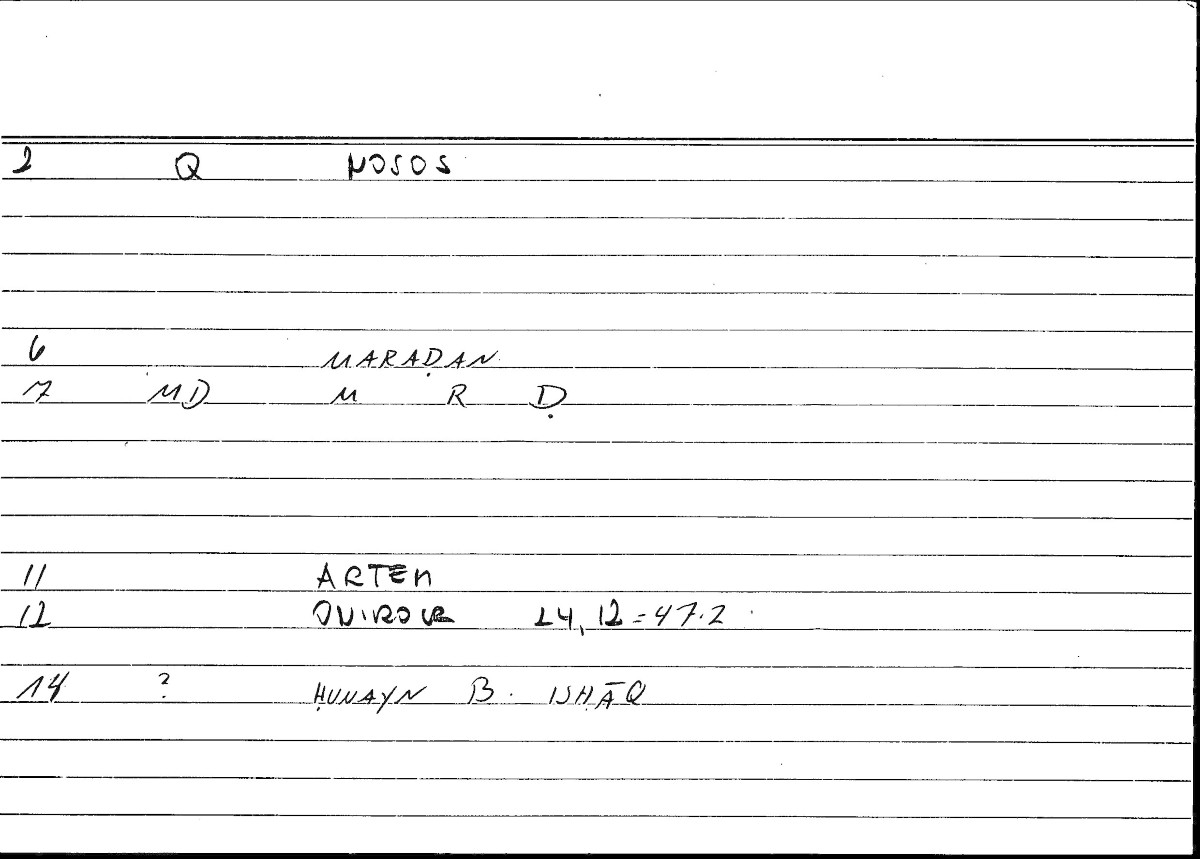 2 Q NOSOS
6 MARAḌAN
7 MD M R Ḍ
11 ARTEM
12 ONIROCR 24,12=47.2
14 ? ḤUNAYN B. ISḤĀQ